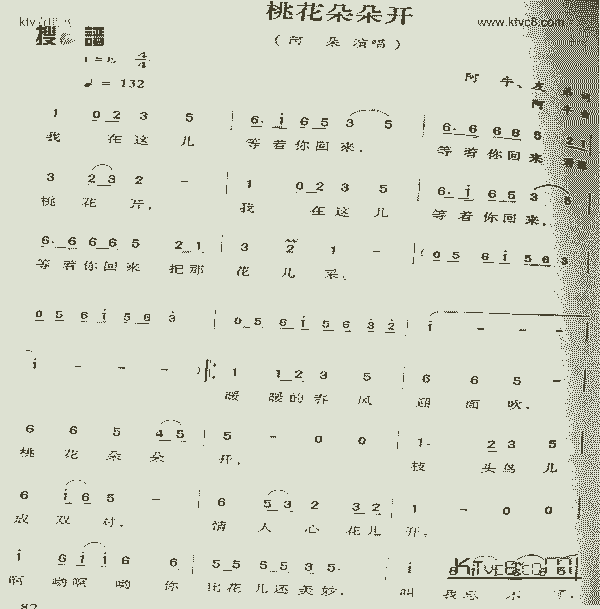 桃花朵朵开
www.ktvc8.com
搜 谱
(阿 朵 演唱)
4/4
♩ = 132
阿 牛、
1 0 2 3 5 | 6· i 6 5 3 5 | 6· 6 6 6 6
我 在这儿 等着你回来, 等着你回来
3 2 3 2 - | 1 0 2 3 5 | 6· i 6 5 3 5
桃 花 开, 我 在这儿 等着你回来,
6· 6 6 6 5 2 1 | 3 2 1 - | 0 5 6 i 5 6 3
等着你回来 把那 花 儿 采。
0 5 6 i 5 6 3 | 0 5 6 i 5 6 3 2 | i - - -
i - - - :‖ 1 1 2 3 5 | 6 6 5 -
暖 暖的春 风 迎 面 吹,
6 6 5 4 5 | 5 - 0 0 | 1· 2 3 5
桃 花 朵 朵 开, 枝 头鸟 儿
6 i 6 5 - | 6 5 3 2 3 2 | 1 - 0 0
成 双 对, 情 人 心 花儿 开。
i 6 i i 6 | 5 5 5 5 3
啊 哟啊 哟 你 比花儿还美妙, 叫 我
KTVC8.COM
82